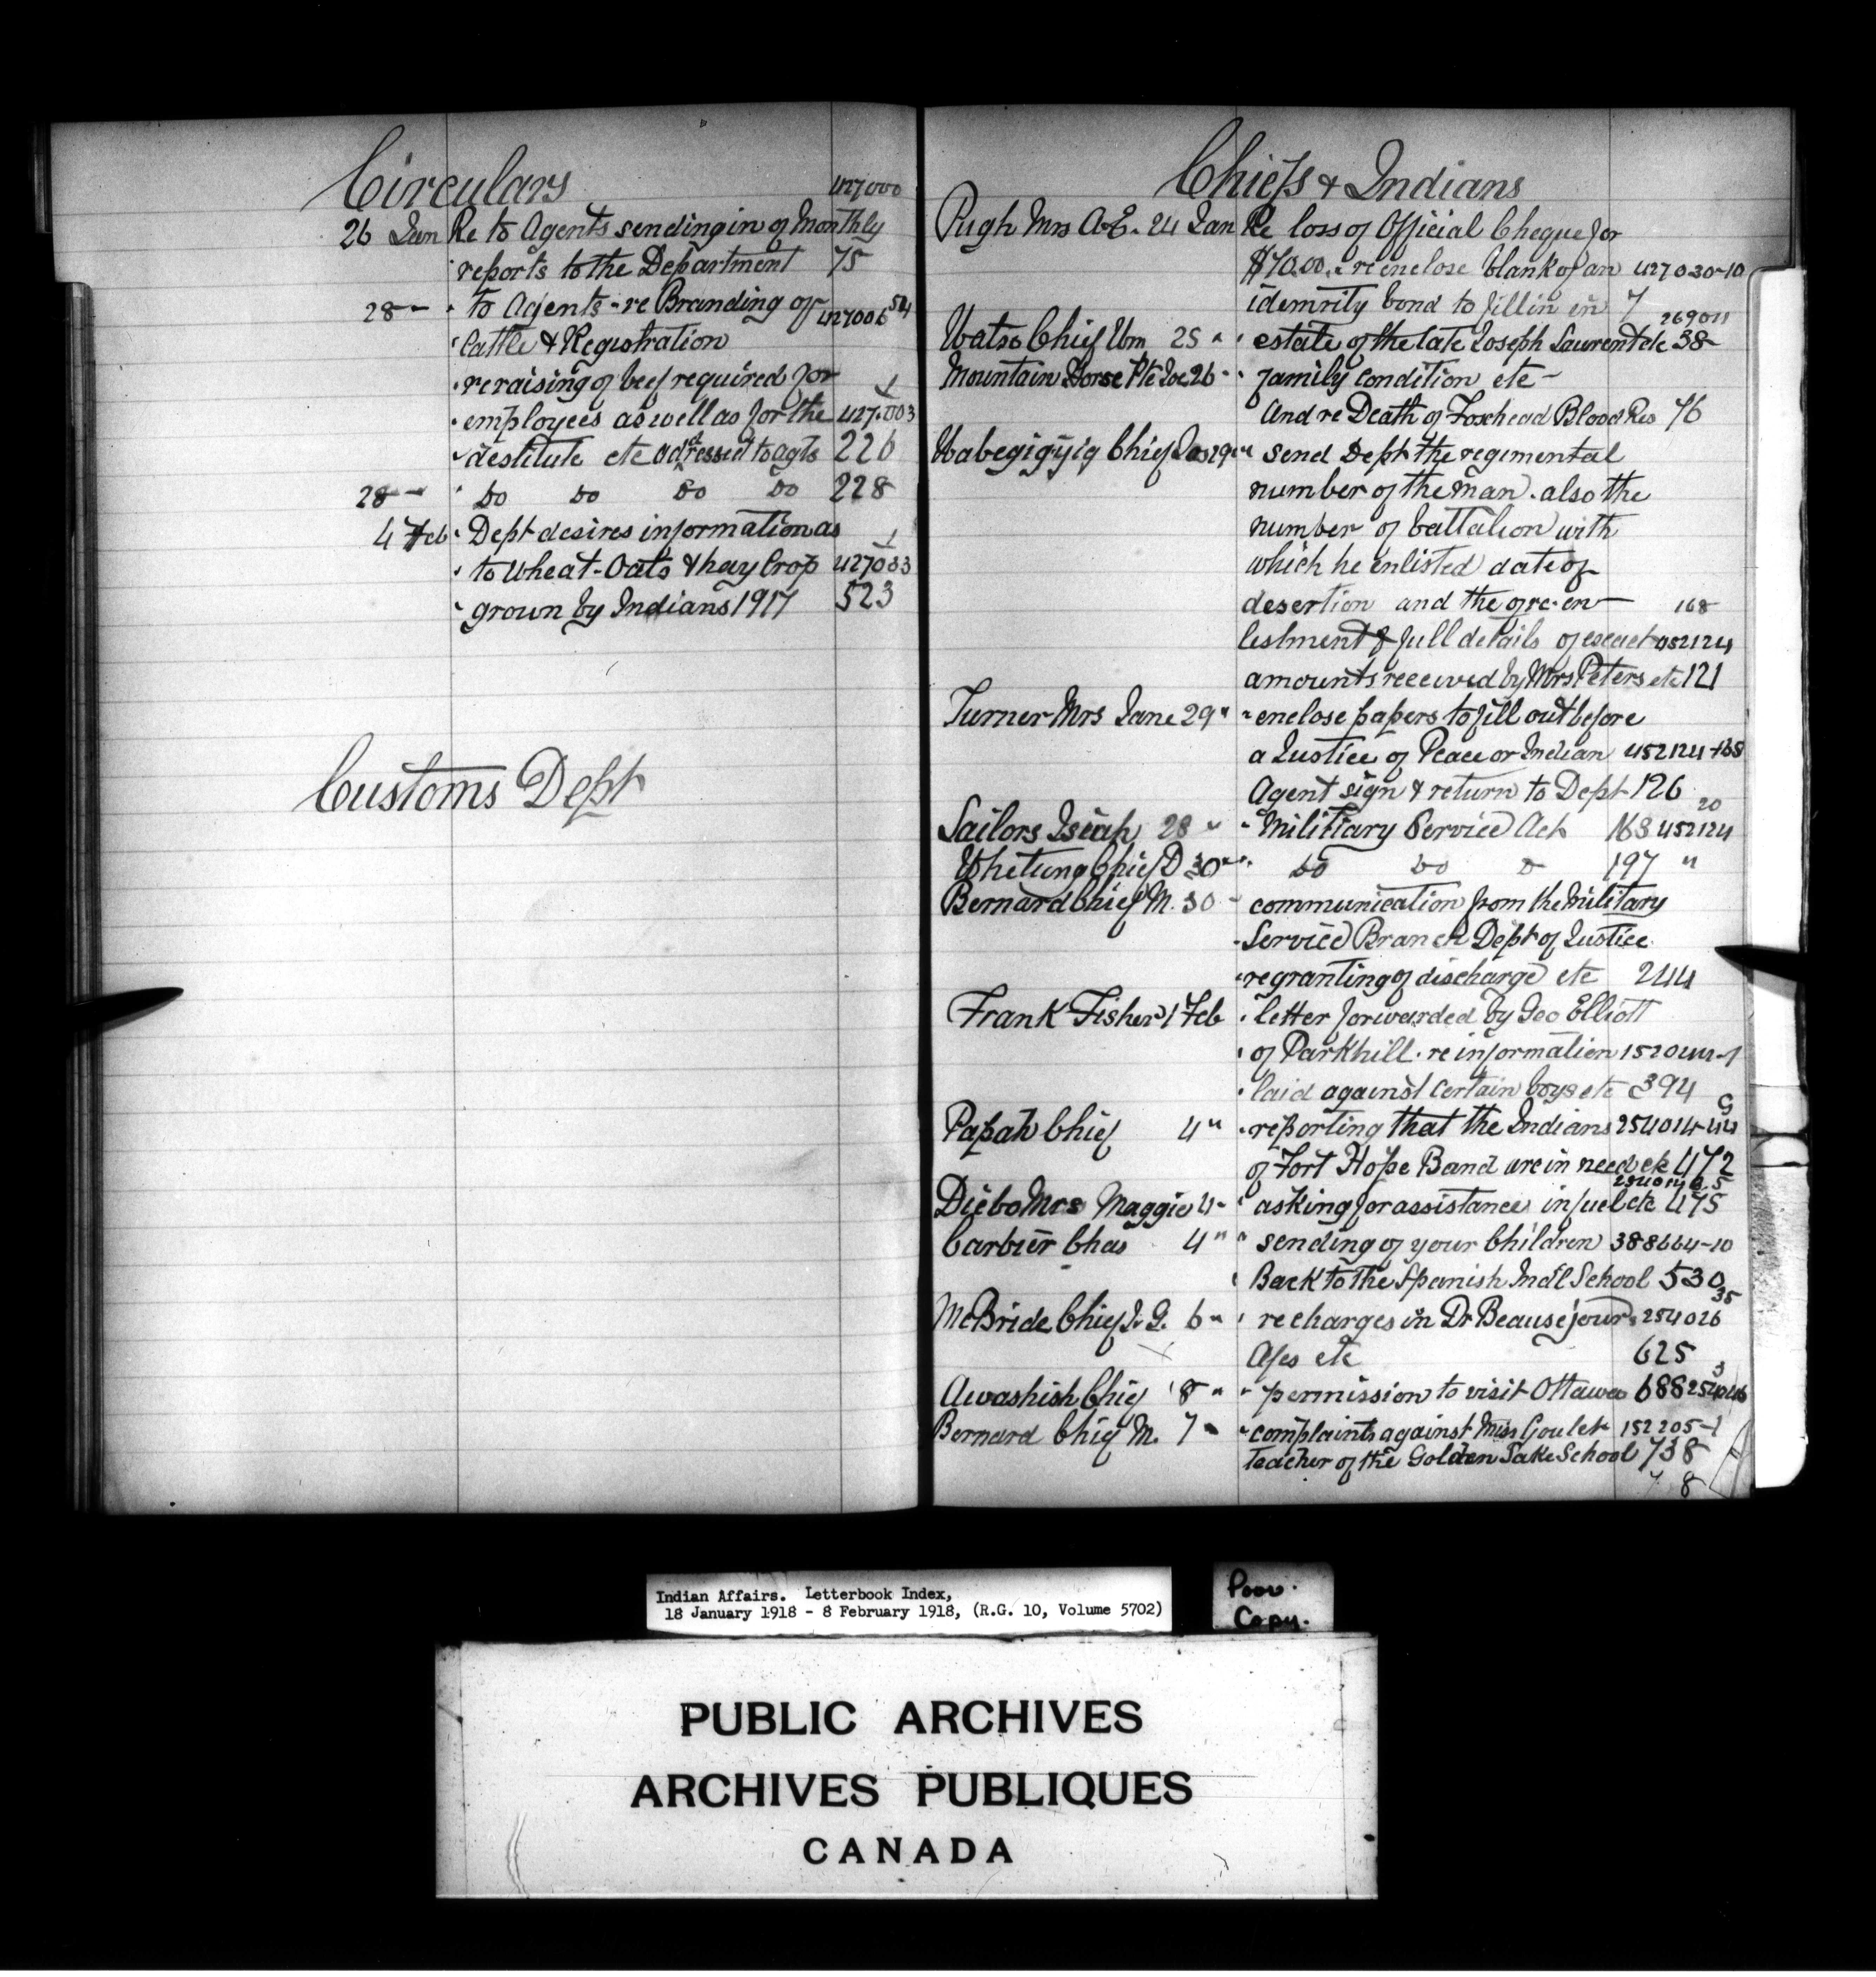 Circulars 427000
26 Jan Re to Agents sending in of Monthly
reports to the Department 75
28 " " to Agents - re Branding of 427006 584
" Cattle & Registration
" re raising of beef required for 1
" employees as well as for the 427.003
" destitute etc addressed to agts 226
28 " " Do Do Do Do 228
4 Feb " Dept desires information as 1
" to Wheat - Oats & hay Crop 427033
" grown by Indians 1917 523
Customs Dept
Chiefs & Indians
Pugh Mrs A.E. 24 Jan Re loss of Official Cheque for
$70.00. & re enclose blank of an 427030-10
idemnity bond to fill in in 7
269011
Watso Chief Wm 25 " " estate of the late Joseph Laurent etc 38
Mountain Horse Pte Joe 26 " " family condition etc -
and re Death of Foxhead Blood Res 76
Wabegigyig Chief Jas 29 " " send Dept the regimental
number of the man. also the
number of battalion with
which he enlisted date of
desertion and the of re-en- 168
listment & full details of exact 452124
amounts received by Mrs Peters etc 121
Turner Mrs Jane 29 " " enclose papers to fill out before
a Justice of Peace or Indian 452124-168
Agent sign & return to Dept 126
20
Sailors Isiah 28 " " Military Service Act 163 452124
Whetung Chief D 30 " " Do Do Do 197 "
Bernard Chief M. 30 " communication from the Military
" Service Branch Dept of Justice
" re granting of discharge etc 244
Frank Fisher 1 Feb " letter forwarded by Geo Elliott
" of Parkhill. re information 152044-1
" laid against certain boys etc 394
Papah Chief 4 " " reporting that the Indians 254014-44 G
of Fort Hope Band are in need etc 472
Diebo Mrs Maggie 4 " " asking for assistance in fuel etc 475
Carbier Chas 4 " " sending of your Children 388664-10
" Back to the Spanish Ind'l School 530
35
McBride Chief J. G. 6 " " re charges in Dr Beauséjours 254026
A/cs etc 625
3
Awashish Chief 8 " " permission to visit Ottawa 688
Bernard Chief M. 7 " " complaints against Miss Goulet 152205-1
Teacher of the Golden Lake School 738
7 8
Indian Affairs. Letterbook Index,
18 January 1918 - 8 February 1918, (R.G. 10, Volume 5702)
Poor
Copy.
PUBLIC ARCHIVES
ARCHIVES PUBLIQUES
CANADA